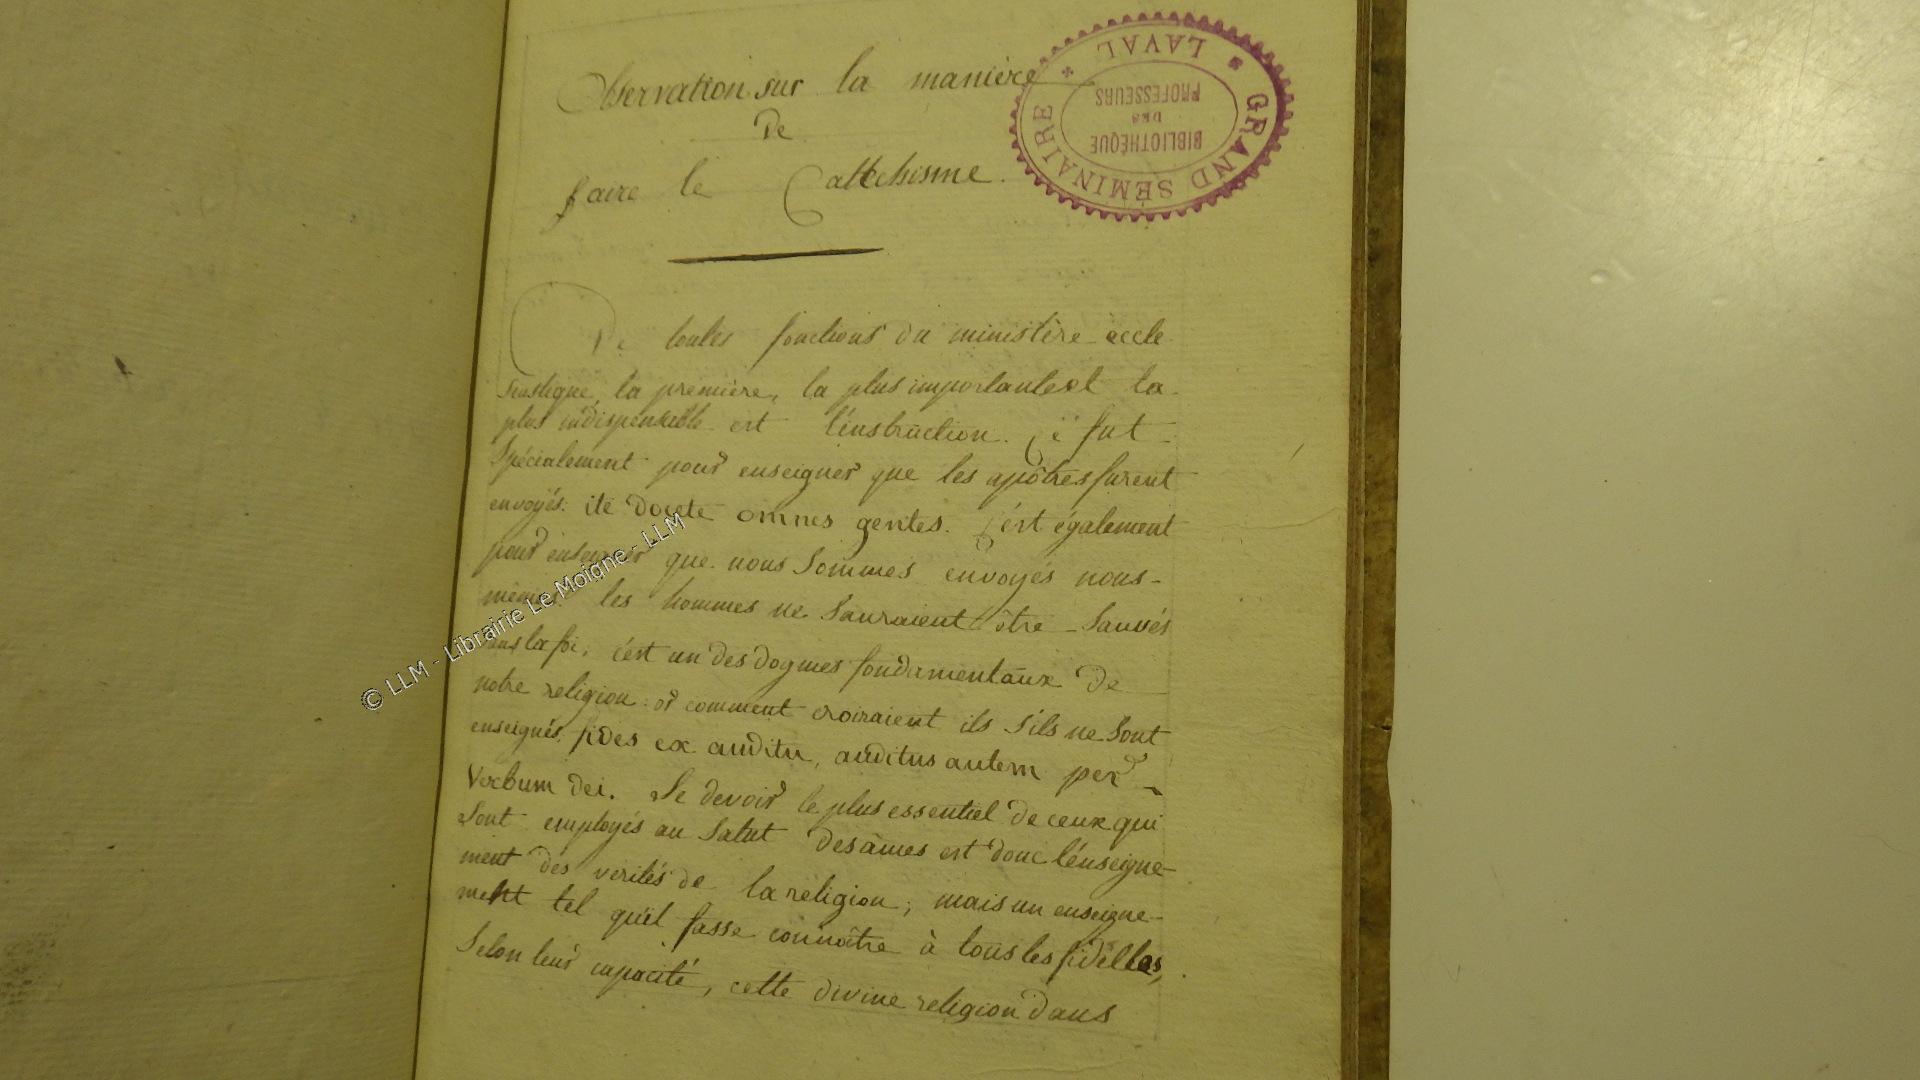 Observation sur la manière
De
faire le Cathéchisme.
De toutes fonctions du ministère eccle
siastique, la première, la plus importante et la
plus indispensable est l'instruction. Ce fut
Spécialement pour enseigner que les apôtres furent
envoyés: ite docete omnes gentes. C'est également
pour enseigner que nous Sommes envoyés nous-
mêmes les hommes ne Sauraient être Sauvés
sans la foi, c'est un des dogmes fondamentaux De
notre religion: or comment croiraient ils s'ils ne Sont
enseignés, fides ex auditu, auditus autem per
Verbum dei. Le devoir le plus essentiel de ceux qui
Sont employés au Salut des âmes est donc l'enseigne-
ment des vérités de la religion; mais un enseigne-
ment tel qu'il fasse connoître à tous les fidelles,
Selon leur capacité, cette divine religion dans
GRAND SÉMINAIRE
* LAVAL *
BIBLIOTHÈQUE
DES
PROFESSEURS
© LLM - Librairie Le Moigne - LLM